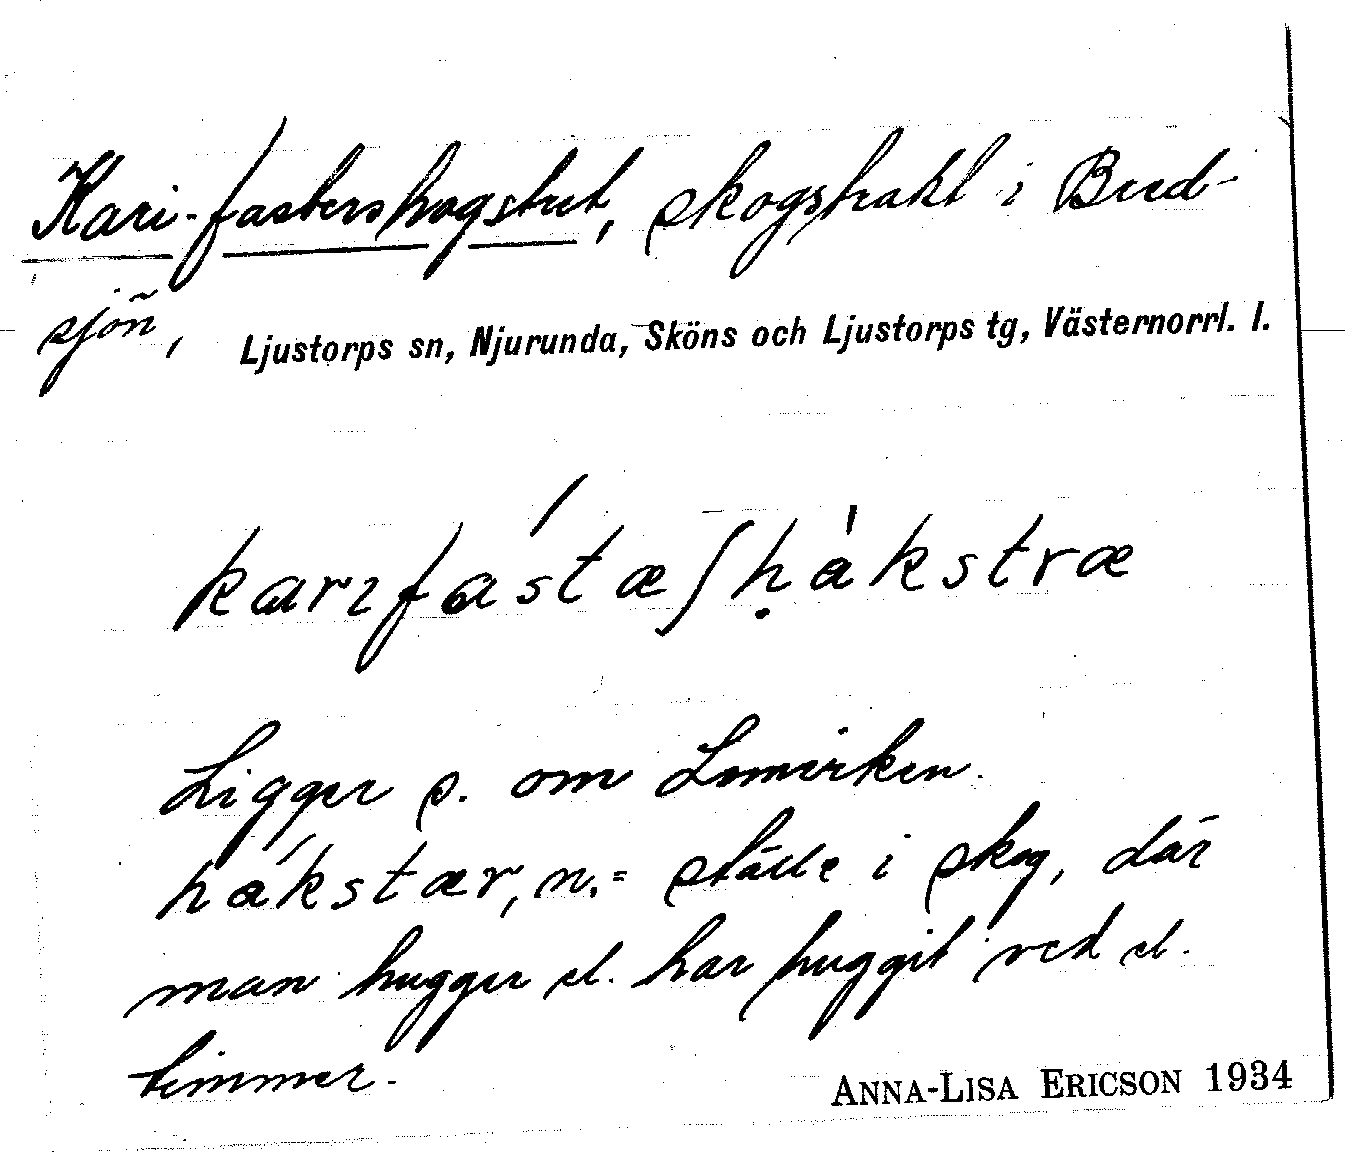 Kari-fastershogstret, skogstrakt i Bred-
sjön, Ljustorps sn, Njurunda, Sköns och Ljustorps tg, Västernorrl. l.
karɪfástæʃḥàkstræ
Ligger s. om
hákstær, n. = ställe i skog, där
man hugger el. har huggit ved el.
timmer.
ANNA-LISA ERICSON 1934